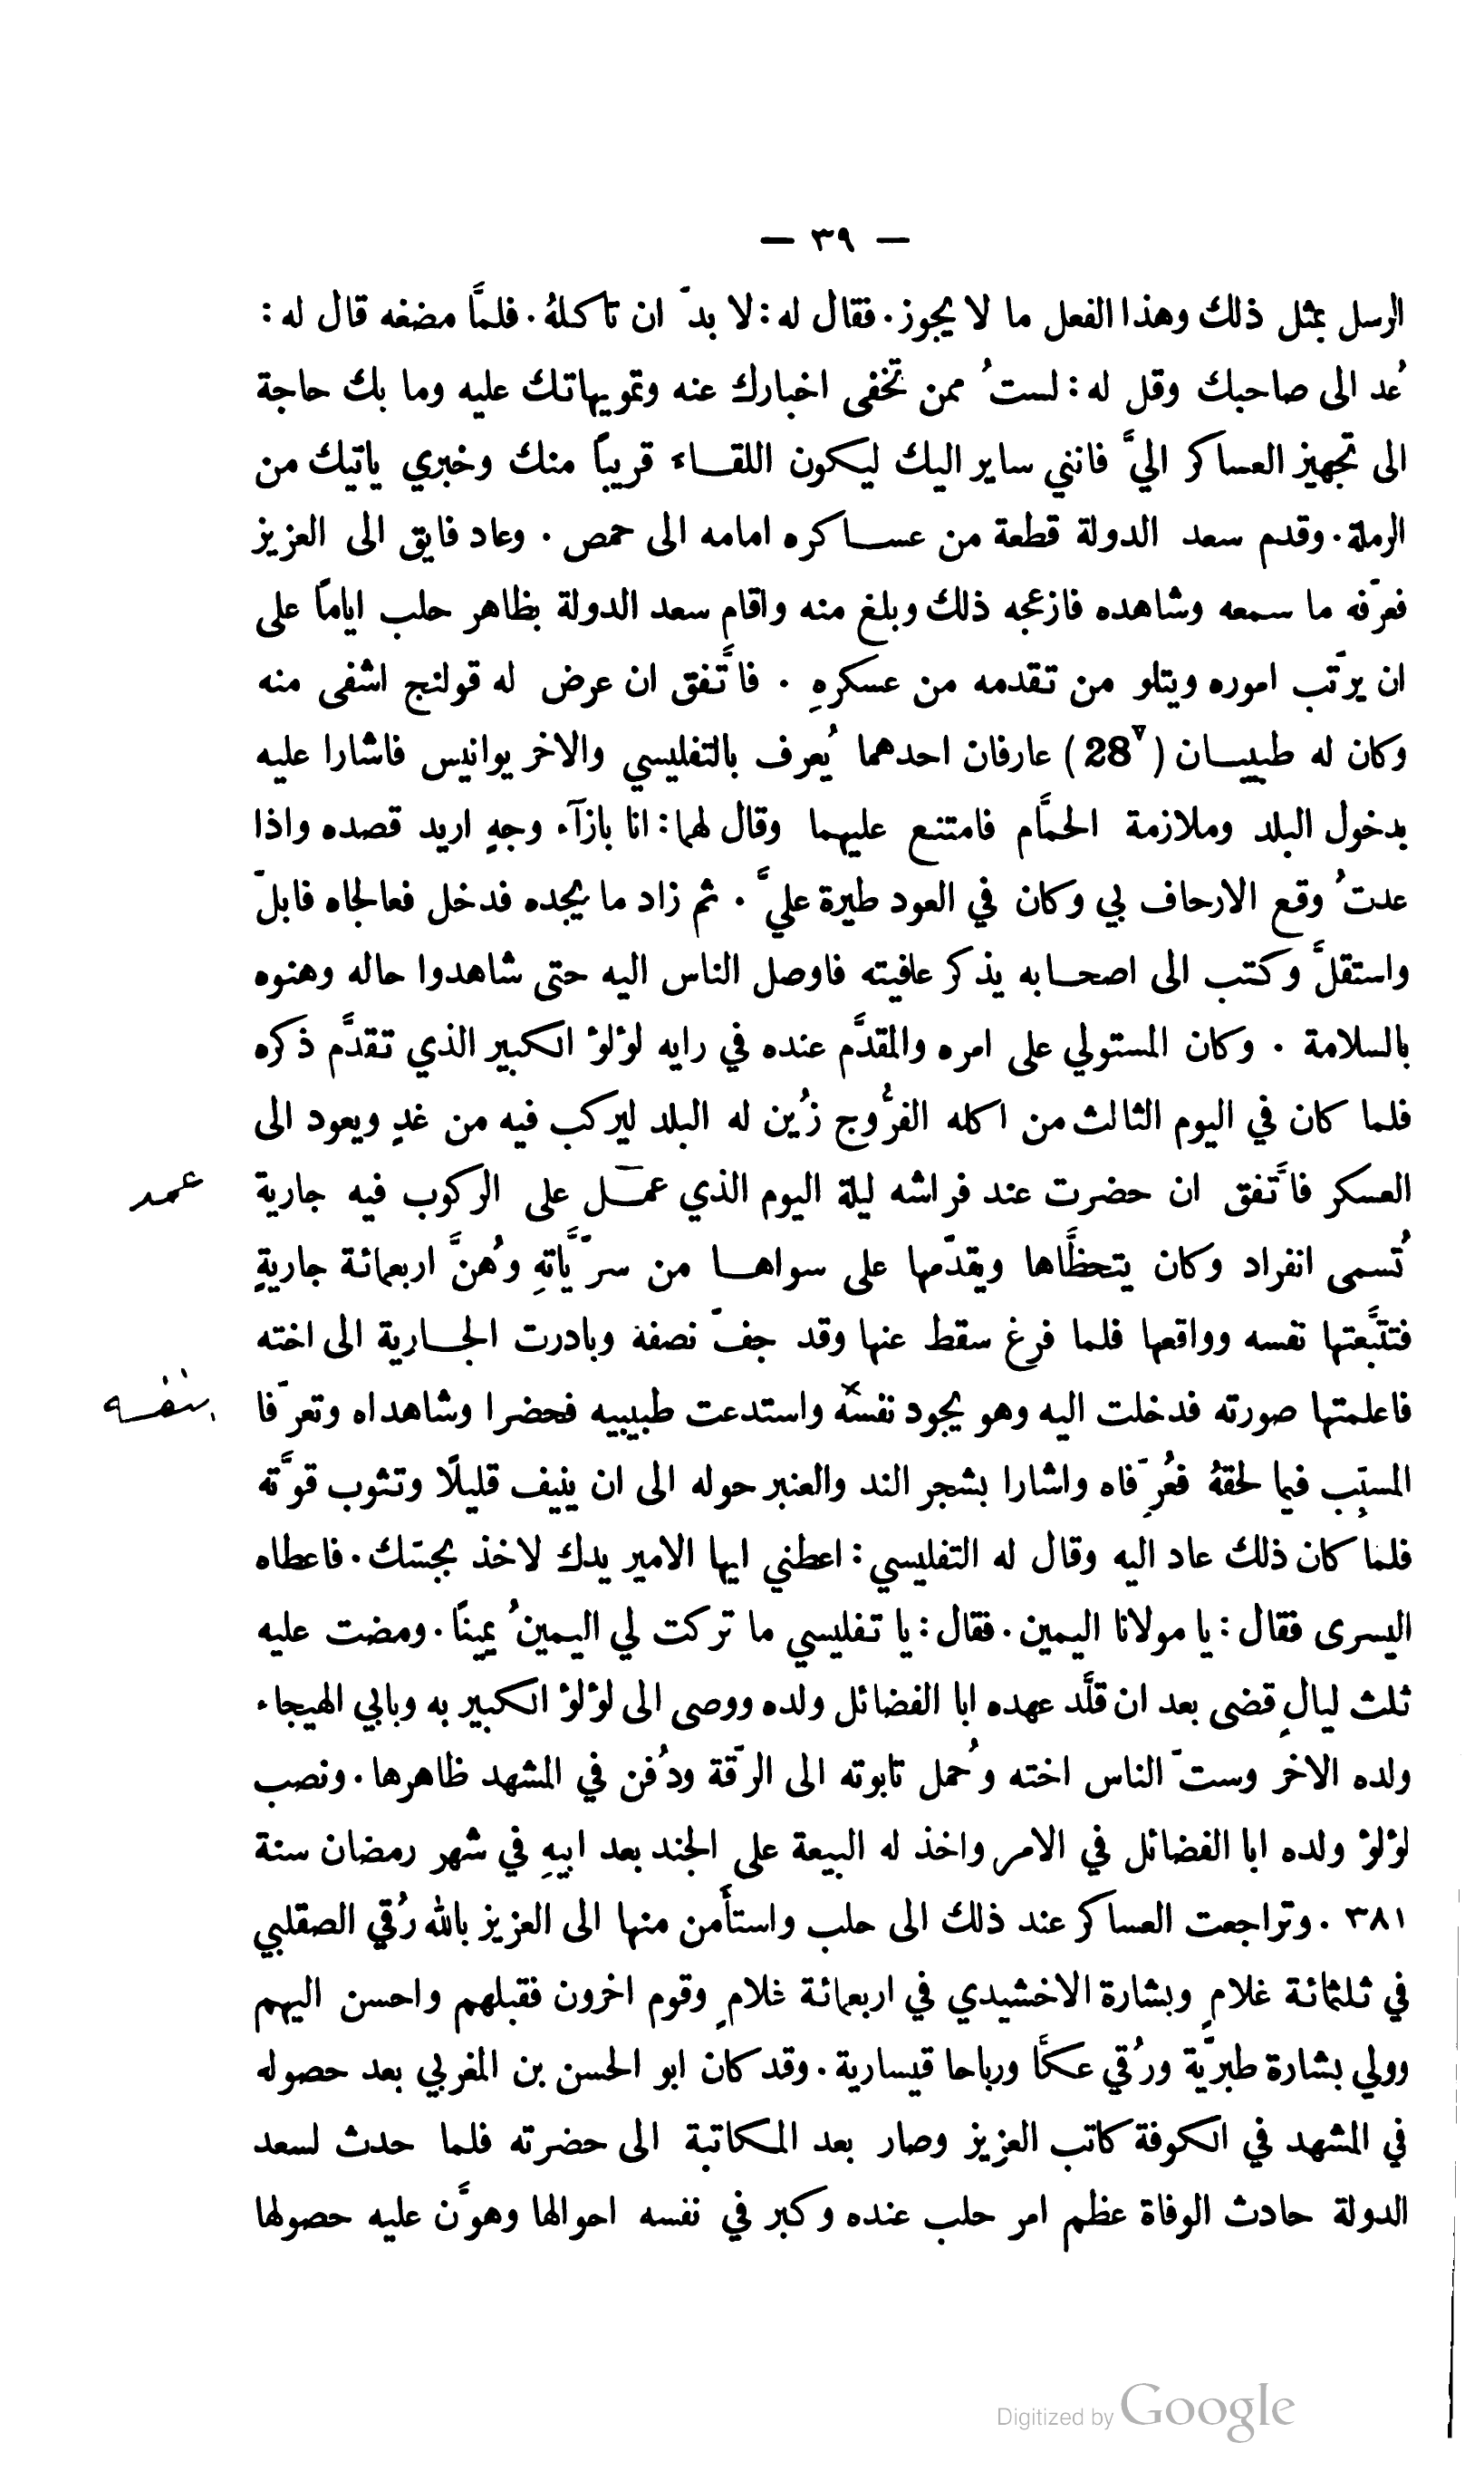 — ٣٩ —
الرسل بمثل ذلك وهذا الفعل ما لا يجوز. فقال له: لا بدّ ان تاكلهُ. فلمَّا مضغه قال له:
عُد الى صاحبك وقل له: لستُ ممن تخفى اخبارك عنه وتمويهاتك عليه وما بك حاجة
الى تجهيز العساكر اليَّ فانني ساير اليك ليكون اللقاء قريباً منك وخبري ياتيك من
الرملة. وقدم سعد الدولة قطعة من عساكره امامه الى حمص. وعاد فايق الى العزيز
فعرّفه ما سمعه وشاهده فازعجه ذلك وبلغ منه واقام سعد الدولة بظاهر حلب اياماً على
ان يرتّب اموره ويتلو من تقدمه من عسكرهِ. فاتَّفق ان عرض له قولنج اشفى منه
وكان له طبيبان (28ᵛ) عارفان احدهما يُعرف بالتفليسي والاخر يوانيس فاشارا عليه
بدخول البلد وملازمة الحمَّام فامتنع عليهما وقال لهما: انا بازآء وجهٍ اريد قصده واذا
عدتُ وقع الارحاف بي وكان في العود طيرة عليَّ. ثم زاد ما يجده فدخل فعالجاه فابلّ
واستقلَّ وكتب الى اصحابه يذكر عافيته فاوصل الناس اليه حتى شاهدوا حاله وهنوه
بالسلامة. وكان المستولي على امره والمقدَّم عنده في رايه لؤلؤ الكبير الذي تقدَّم ذكره
فلما كان في اليوم الثالث من اكله الفرُّوج زُين له البلد ليركب فيه من غدٍ ويعود الى
العسكر فاتَّفق ان حضرت عند فراشه ليلة اليوم الذي عمل على الركوب فيه جارية عمد
تُسمى انفراد وكان يتحظَّاها ويقدّمها على سواها من سرّيَّاتهِ وهُنَّ اربعمائة جاريةٍ
فتتبَّعتها نفسه وواقعها فلما فرغ سقط عنها وقد جفّ نصفة وبادرت الجارية الى اخته
فاعلمتها صورته فدخلت اليه وهو يجود نفسه واستدعت طبيبيه فحضرا وشاهداه وتعرّفا بنفسه
المسبّب فيما لحقهُ فعُرِّفاه واشارا بشجر الند والعنبر حوله الى ان ينيف قليلًا وتثوب قوَّته
فلما كان ذلك عاد اليه وقال له التفليسي: اعطني ايها الامير يدك لاخذ بجسّك. فاعطاه
اليسرى فقال: يا مولانا اليمين. فقال: يا تفليسي ما تركت لي اليمينُ يمينًا. ومضت عليه
ثلث ليالٍ قضى بعد ان قلَّد عهده ابا الفضائل ولده ووصى الى لؤلؤ الكبير به وبابي الهيجاء
ولده الاخر وستّ الناس اخته وحُمل تابوته الى الرّقة ودُفن في المشهد ظاهرها. ونصب
لؤلؤ ولده ابا الفضائل في الامر واخذ له البيعة على الجند بعد ابيهِ في شهر رمضان سنة
٣٨١. وتراجعت العساكر عند ذلك الى حلب واستأمن منها الى العزيز بالله رُقي الصقلبي
في ثلثمائة غلامٍ وبشارة الاخشيدي في اربعمائة غلامٍ وقوم اخرون فقبلهم واحسن اليهم
وولي بشارة طبريّة ورُقي عكَّا ورباحا قيسارية. وقد كان ابو الحسن بن المغربي بعد حصوله
في المشهد في الكوفة كاتب العزيز وصار بعد المكاتبة الى حضرته فلما حدث لسعد
الدولة حادث الوفاة عظم امر حلب عنده وكبر في نفسه احوالها وهوَّن عليه حصولها
Digitized by Google